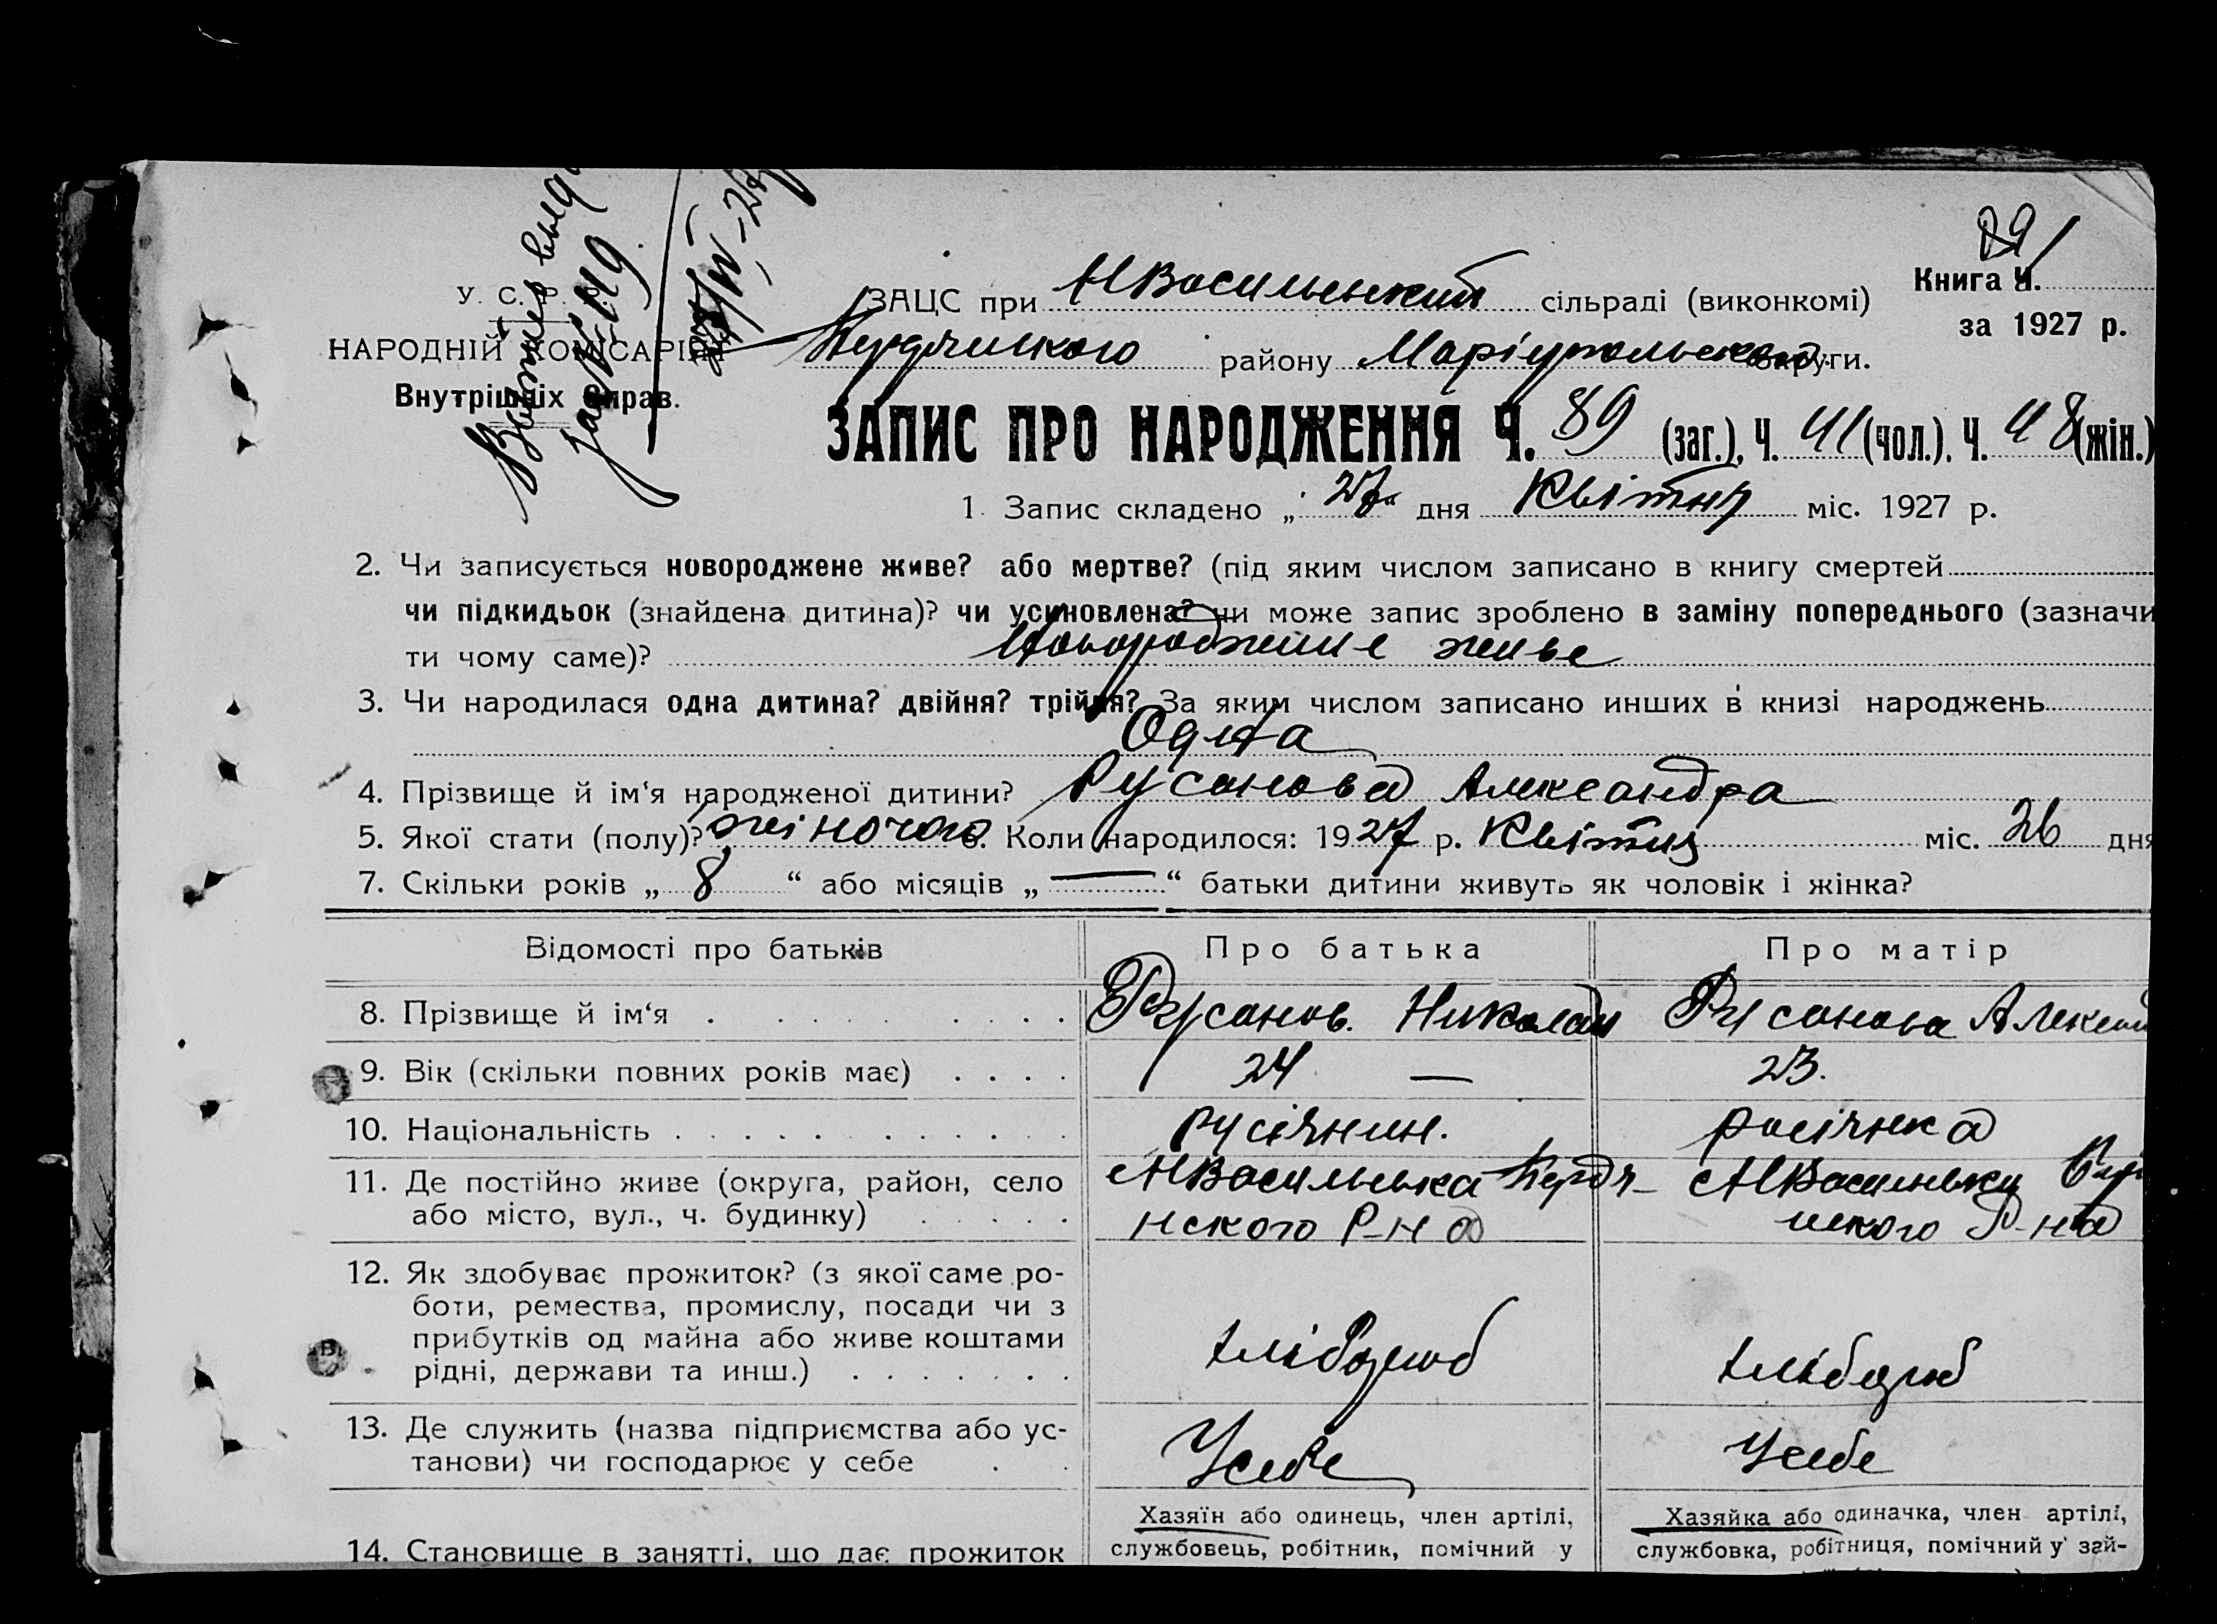 У. С. Р. Р.
НАРОДНІЙ КОМІСАРІЯТ
Внутрішніх Справ.
ЗАЦС при НВасильський сільраді (виконкомі)
району Маріупольської округи.
Книга Ч.
за 1927 р.
ЗАПИС ПРО НАРОДЖЕННЯ Ч. 89 (заг.), Ч. 41 (чол.). Ч. 48 (жін.)
1. Запис складено „ 27 “ дня Квітня міс. 1927 р.
2. Чи записується новороджене живе? або мертве? (під яким числом записано в книгу смертей
чи підкидьок (знайдена дитина)? чи усиновлена? чи може запис зроблено в заміну попереднього (зазначи
ти чому саме)? Новороджение живе
3. Чи народилася одна дитина? двійня? трійня? За яким числом записано инших в книзі народжень
Одна
4. Прізвище й ім‘я народженої дитини? Русанова Александра
5. Якої стати (полу)? жіночого 6. Коли народилося: 1927 р. Квітня міс. 26 дня
7. Скільки років „ 8 “ або місяців „ — “ батьки дитини живуть як чоловік і жінка?
Відомості про батьків Про батька Про матір
8. Прізвище й ім‘я Русанов. Николай Русанова
9. Вік (скільки повних років має) 24 — 23.
10. Національність русічнин. росічнка
11. Де постійно живе (округа, район, село НВасильевка НВасильевки
або місто, вул., ч. будинку) нского Р-на нского Р-на
12. Як здобуває прожиток? (з якої саме ро-
боти, ремества, промислу, посади чи з
прибутків од майна або живе коштами
рідні, держави та инш.) хлібороб хлібороб
13. Де служить (назва підприємства або ус-
танови) чи господарює у себе Усебе Усебе
14. Становище в занятті, що дає прожиток
Хазяїн або одинець, член артілі,
службовець, робітник, помічний у
Хазяйка або одиначка, член артілі,
службовка, робітниця, помічний у зай-